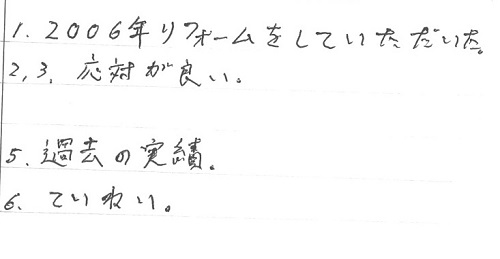 1. 2006年リフォームをしていただいた。
2,3. 応対が良い。
5. 過去の実績。
6. ていねい。